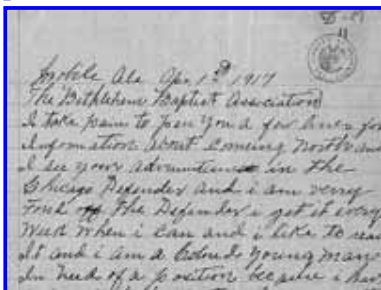 Mobile Ala Apr 1st 1917
The Bethlehem Baptist Association
I take pain to pen you a few lines for
Information about comeing North and
I see your advrumtinest in the
Chicago Defender and i am verry
Fond off the Defender i get it every
Week when i can and i like to read
It and i am a Colord young man
In need of a position because i have